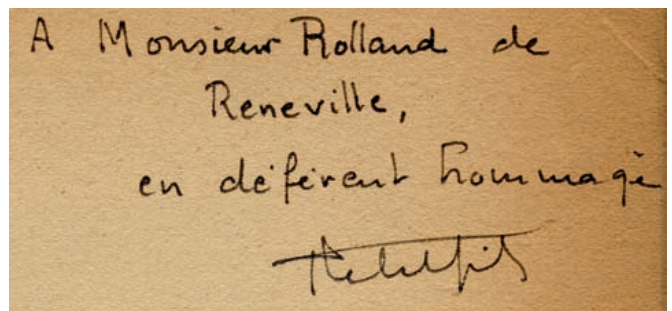 A Monsieur Rolland de
Reneville,
en déférent hommage